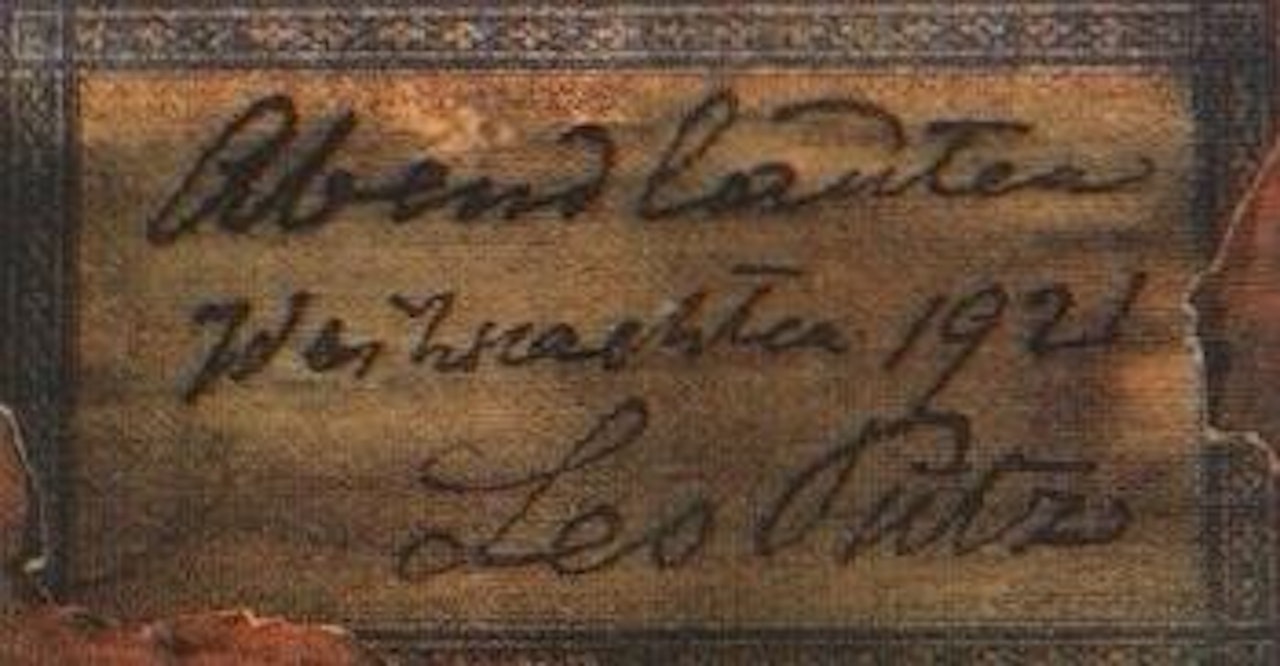 Abend lauten
Weihnachten 1921
Leo Putz